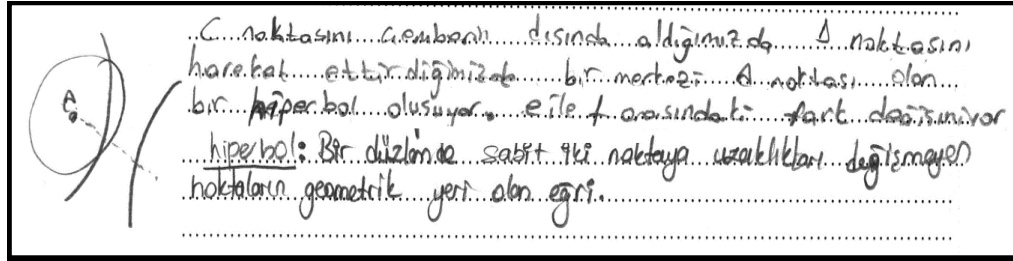 C noktasını çemberin dışında aldığımızda D noktasını
hareket ettirdiğimizde bir merkezi A noktası olan
bir hiperbol oluşuyor. e ile f arasındaki fark değişmiyor
hiperbol: Bir düzlemde sabit iki noktaya uzaklıkları değişmeyen
noktaların geometrik yeri olan eğri.
A